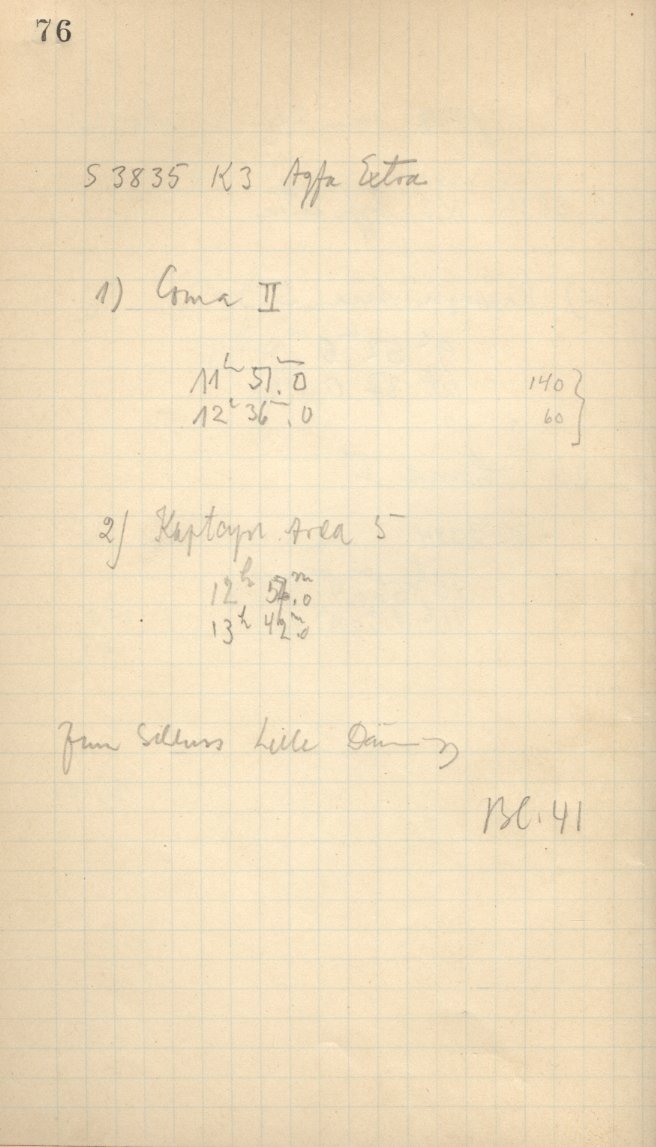 76
S 3835 K3 Agfa Extra
1) Coma II
11h 51m.0 140
12h 36m.0 60
2) Kapteyn Area 5
12h m.0
13h 42m.0
Zum Schluss helle
Bl. 41